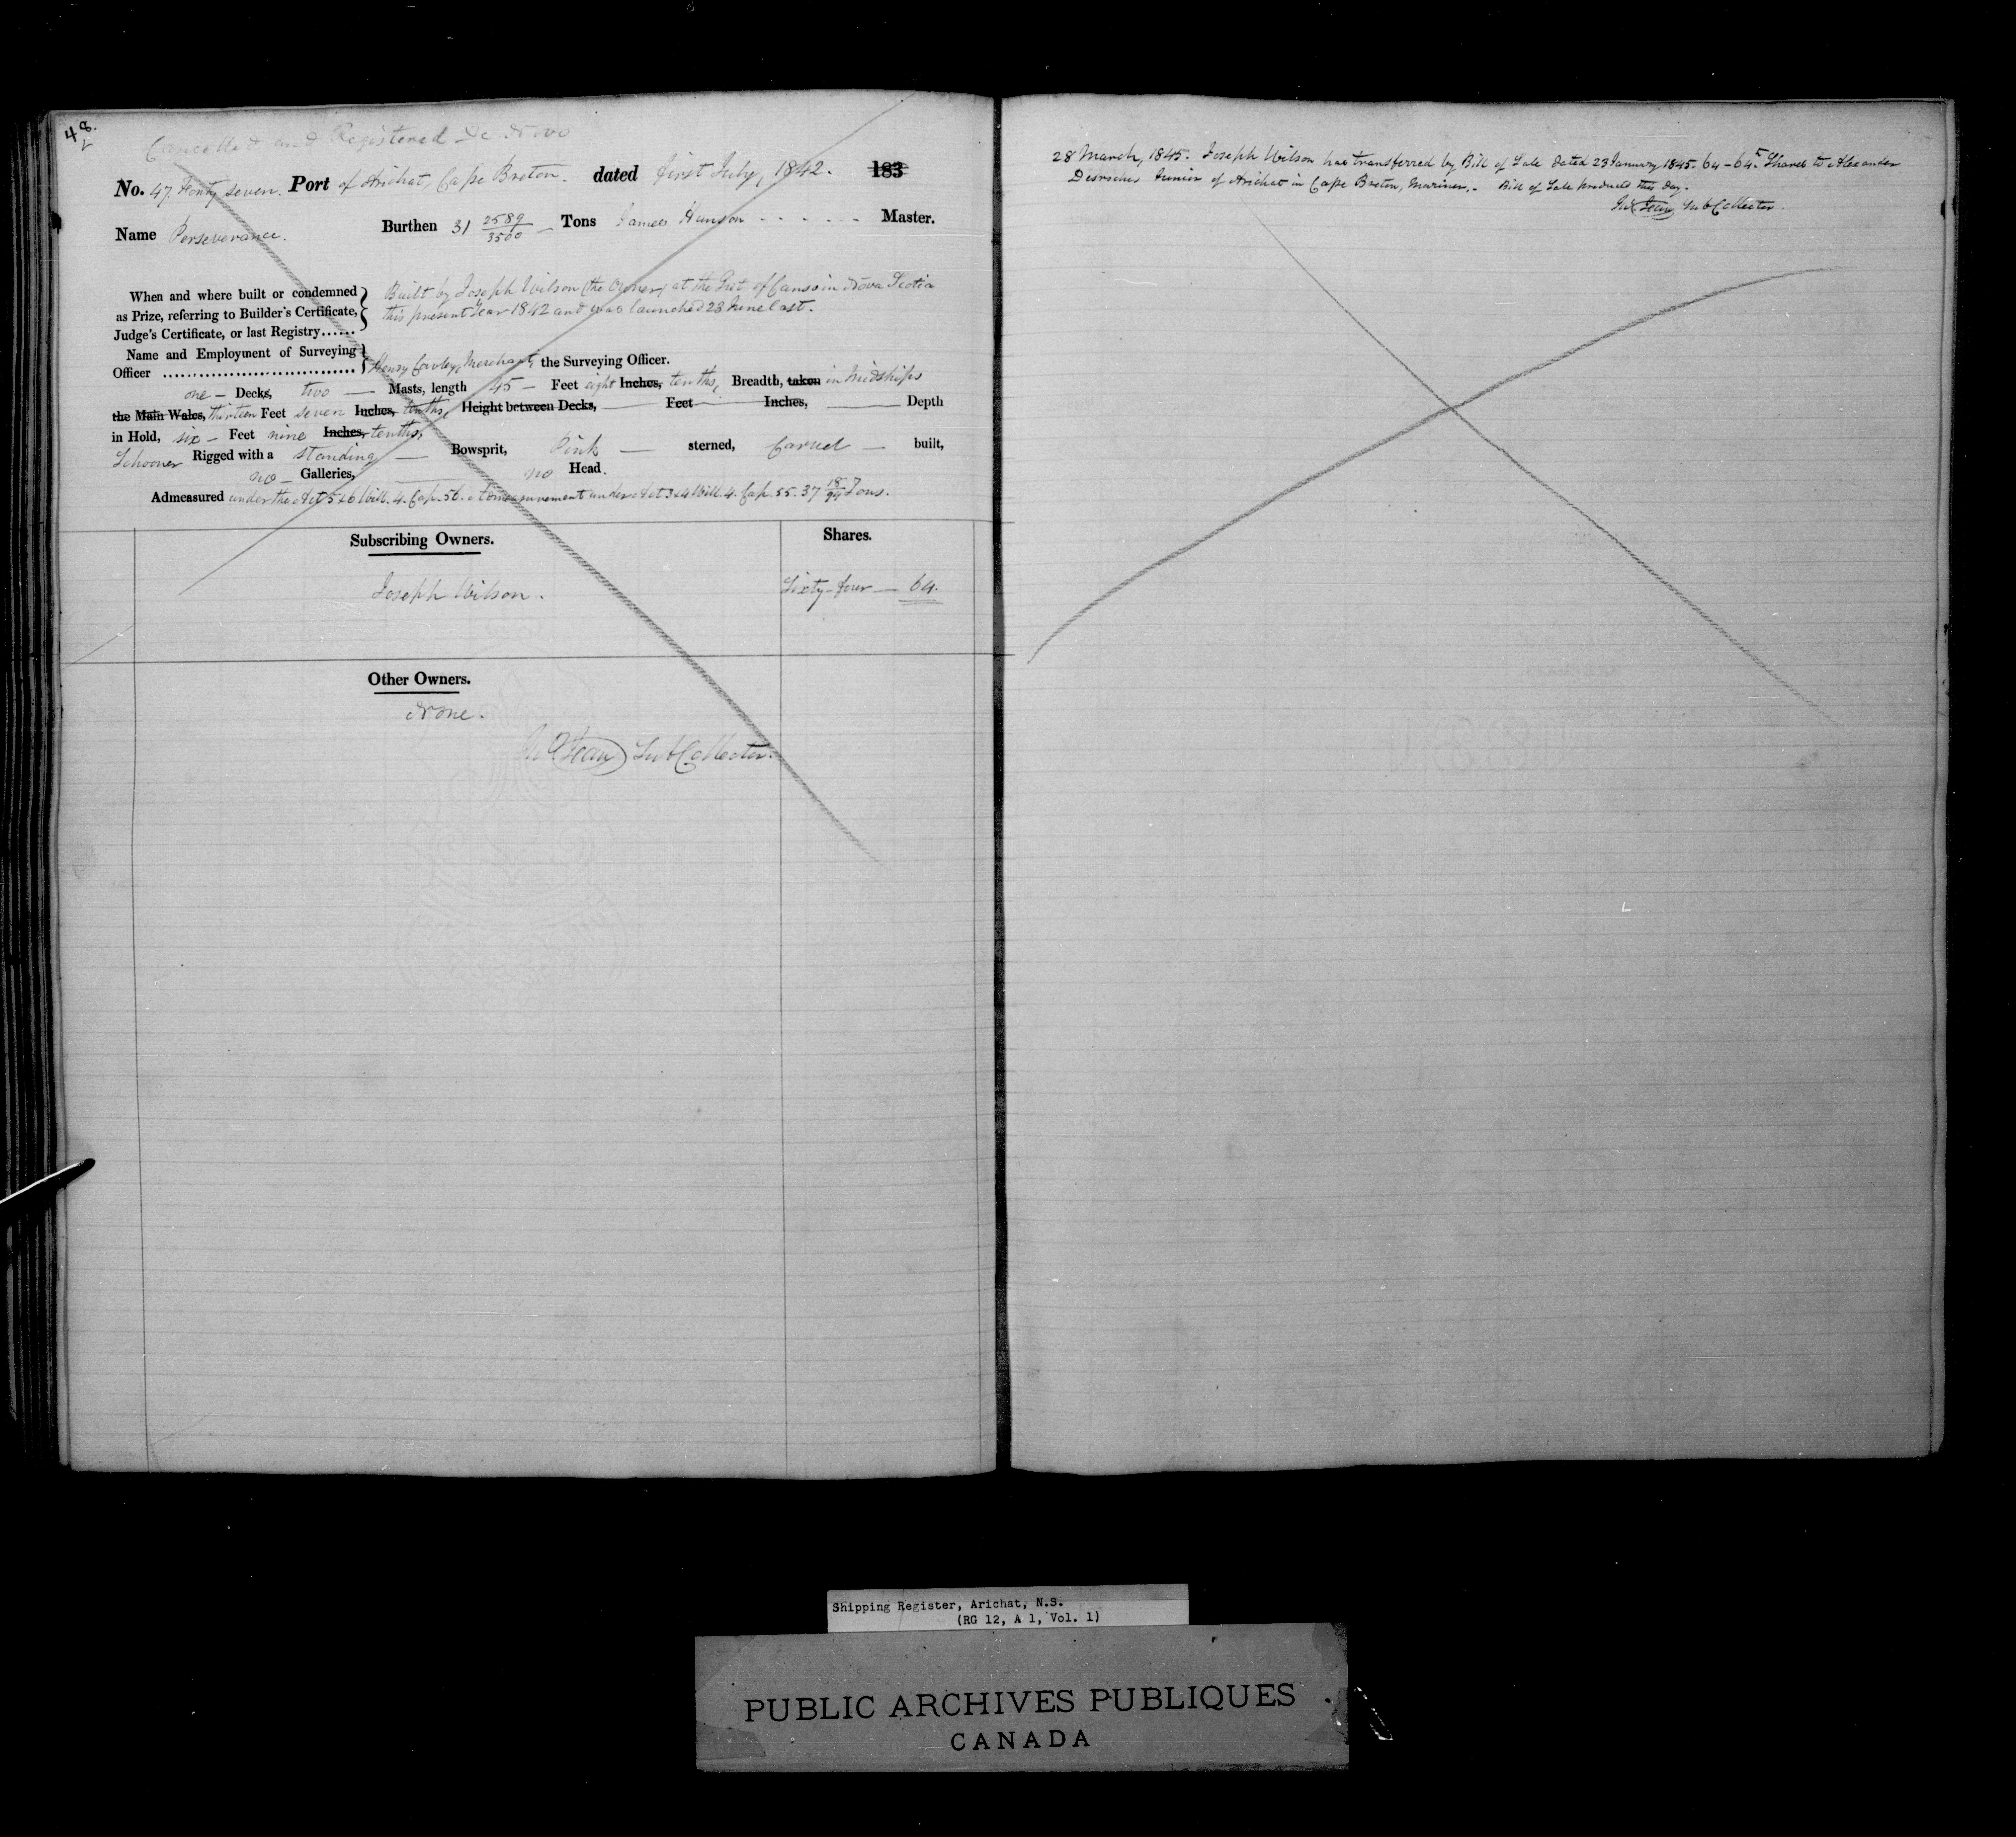 48.
Cancelled and Registered De Novo
No. 47. Forty seven. Port of Arichat, Cape Breton. dated first July, 1842. 183
Name Perseverance. Burthen 31 2589/3500 Tons James Hanson Master.
When and where built or condemned as Prize, referring to Builder's Certificate, Judge's Certificate, or last Registry......
Built by Joseph Wilson (the Owner) at the Gut of Canso in Nova Scotia
this present Year 1842 and was launched 23 June last.
Name and Employment of Surveying
Officer .................. Henry Merchant, the Surveying Officer.
one Decks, two Masts, length 45 Feet eight Inches, tenths, Breadth, taken in Midships
the Main Wales, thirteen Feet seven Inches, tenths, Height between Decks, Feet Inches, Depth
in Hold, six Feet nine Inches, tenths,
Schooner Rigged with a standing Bowsprit, Pink sterned, Carvel built,
no Galleries, no Head.
Admeasured under the Act 5 & 6 Will. 4. Cap. 56. Admeasurement under Act 3 & 4 Will. 4. Cap. 55. 37 18/94 Tons.
Subscribing Owners. Shares.
Joseph Wilson. Sixty-four 64.
Other Owners.
None.
Jean Sub Collector.
28 March, 1845. Joseph Wilson has transferred by Bill of Sale dated 23 January 1845. 64-64th Shares to Alexander
Desroches Junior of Arichat in Cape Breton, Mariner. Bill of Sale produced this day.
Jean Sub Collector.
Shipping Register, Arichat, N.S.
(RG 12, A 1, Vol. 1)
PUBLIC ARCHIVES PUBLIQUES
CANADA